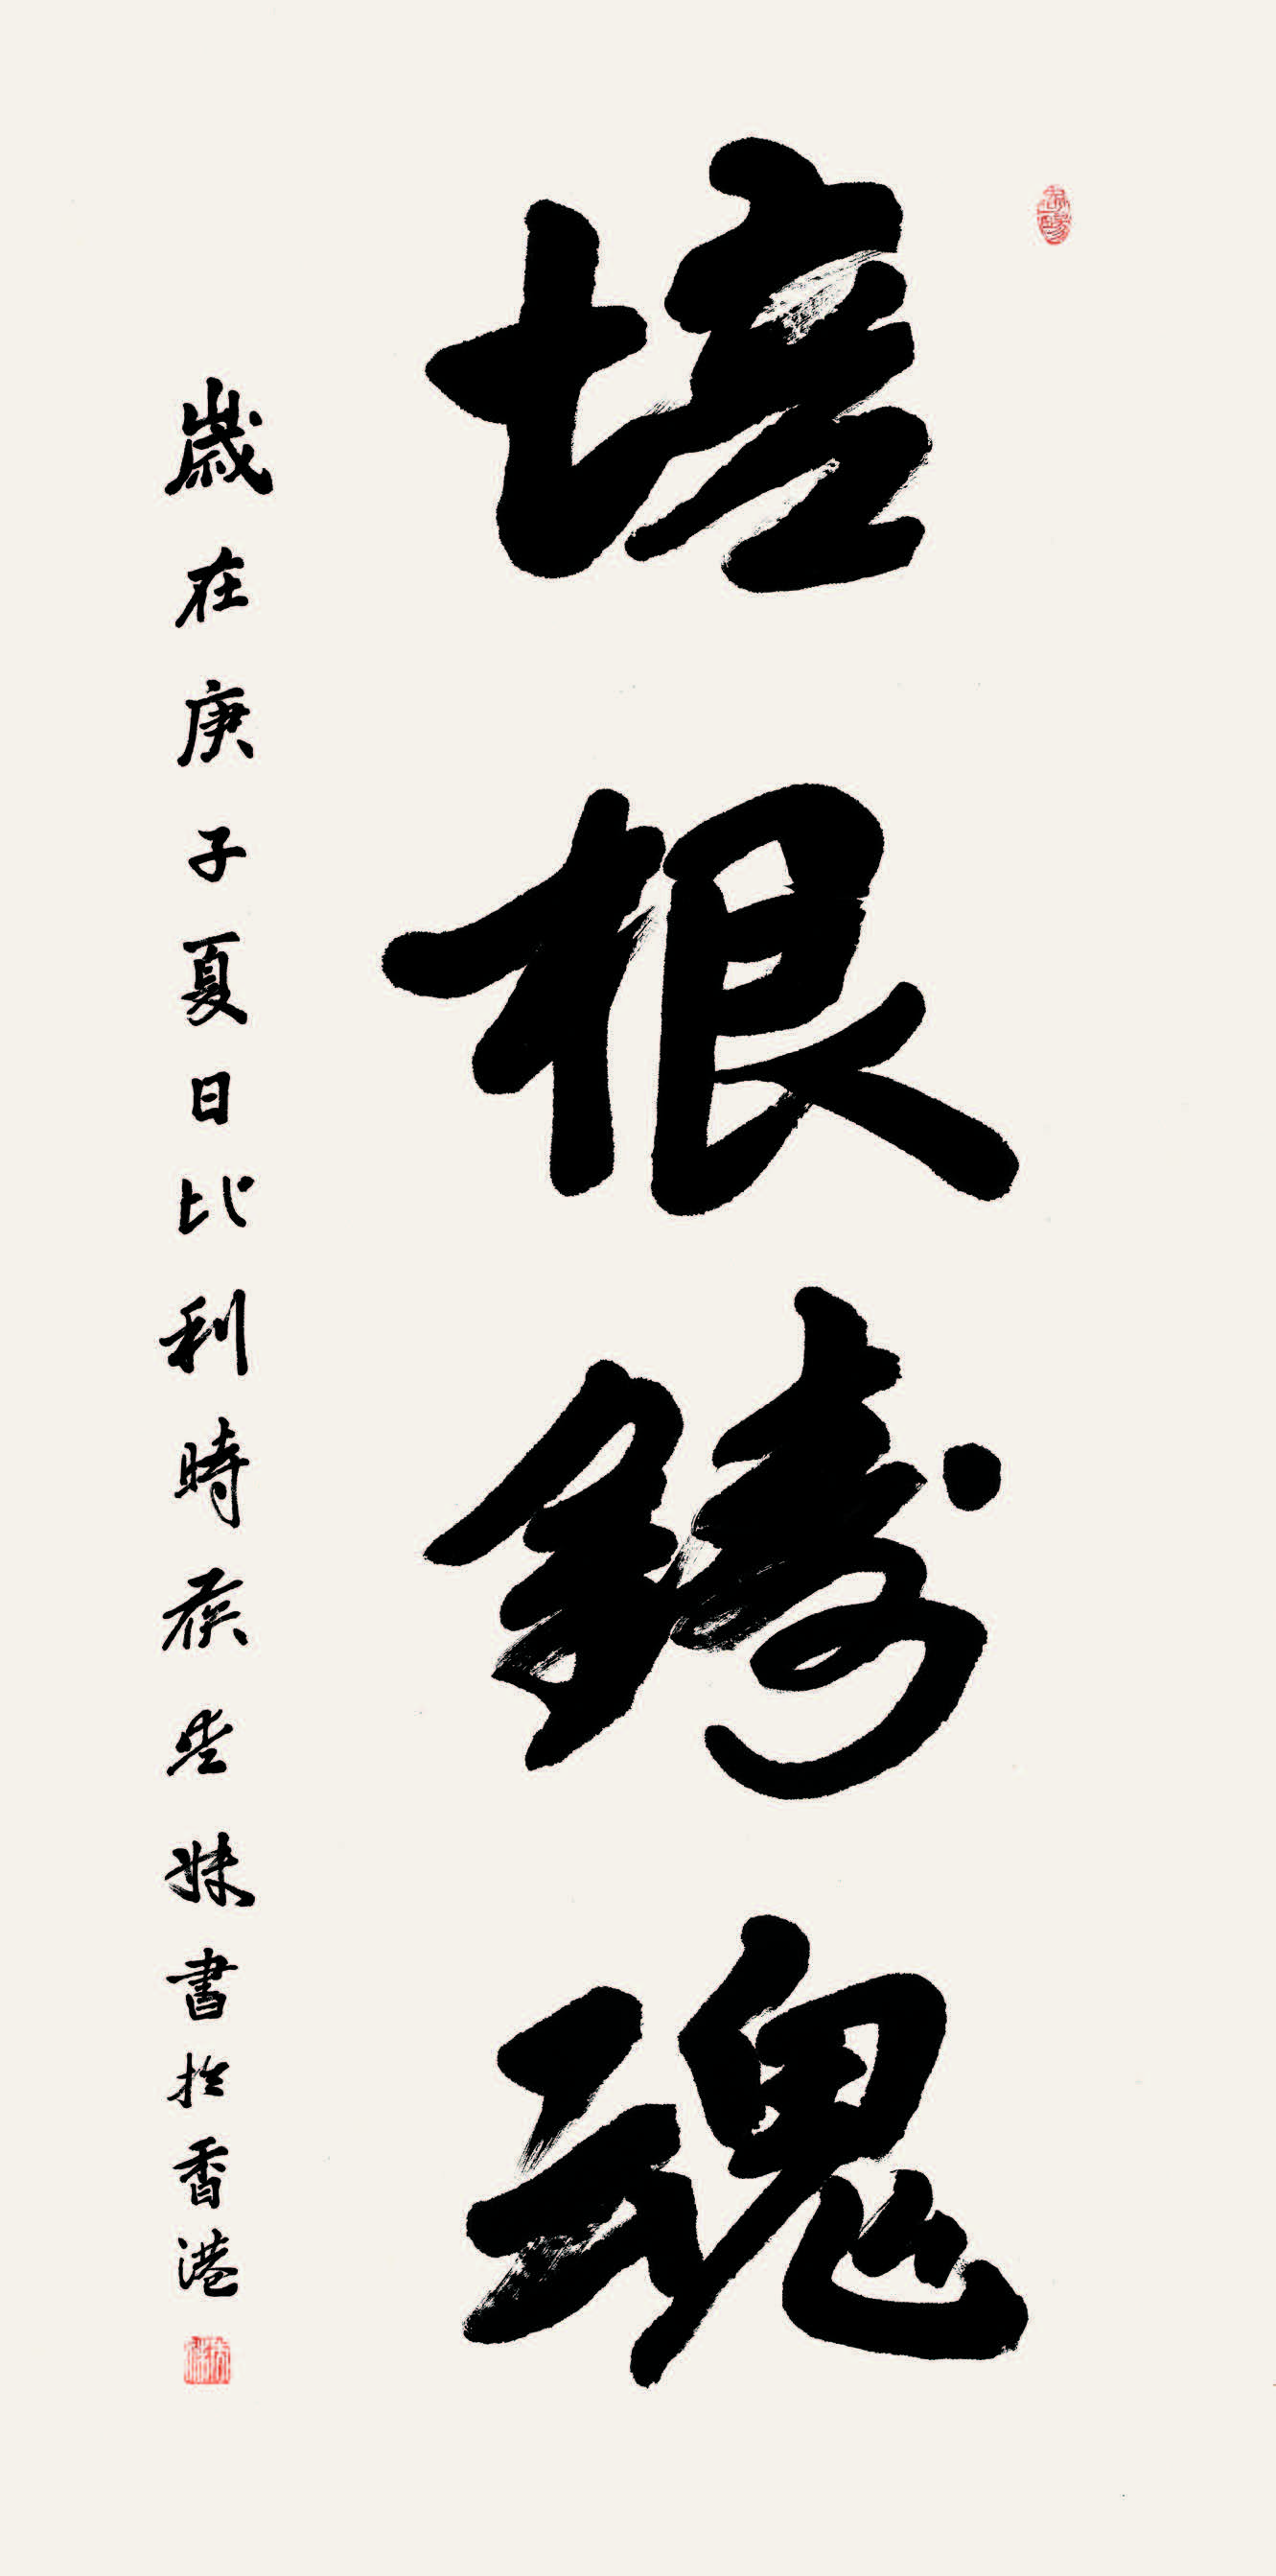 培根鑄魂
歲在庚子夏日比利時侯些妹書於香港